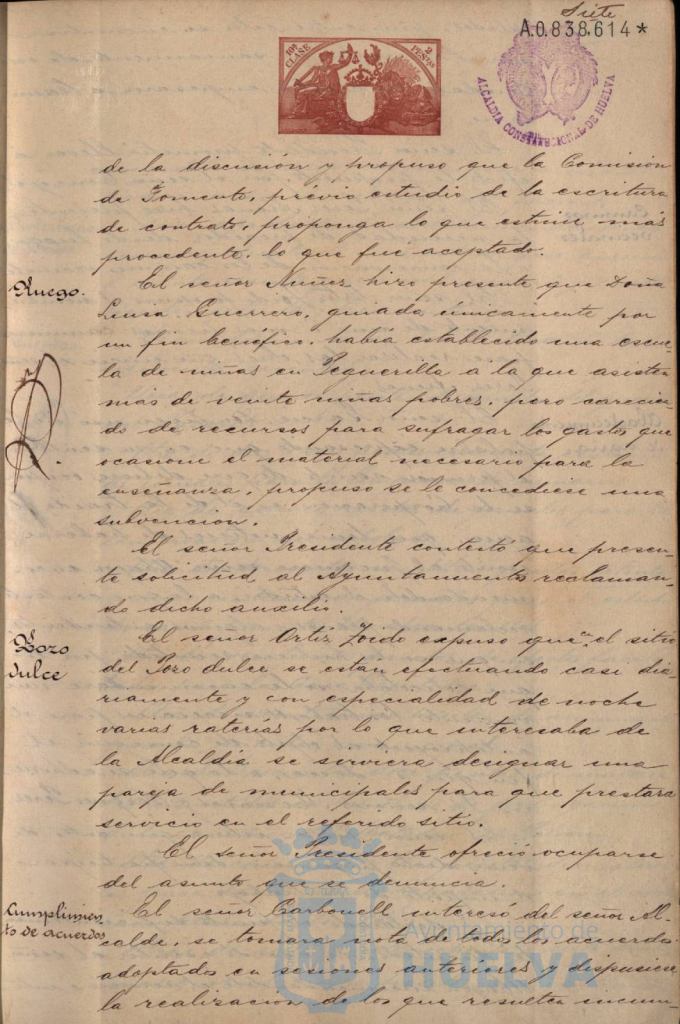 Siete
A.0.838,614*
10ª CLASE
2 PESETAS
ALCALDIA CONSTITUCIONAL DE HUELVA
de la discusión y propuso que la Comisión
de Fomento, prévio estudio de la escritura
de contrato, proponga lo que estime más
procedente, lo que fué aceptado.
Ruego.
El señor Nuñez hizo presente que Doña
Luisa Guerrero, guiada únicamente por
un fin benéfico, había establecido una escue-
la de niñas en Peguerilla á la que asisten
más de veinte niñas pobres, pero carecien-
do de recursos para sufragar los gastos que
ocasione el material necesario para la
enseñanza, propuso se le concediese una
subvencion.
El señor Presidente contestó que presen-
te solicitud al Ayuntamiento reclaman-
do dicho auxilio.
Pozo
dulce
El señor Ortiz Zoido expuso que en el sitio
del Pozo dulce se están efectuando casi dia-
riamente y con especialidad de noche
varias raterías por lo que interesaba de
la Alcaldía se sirviera designar una
pareja de municipales para que prestara
servicio en el referido sitio.
El señor Presidente ofreció ocuparse
del asunto que se denuncia.
Cumplimien
to de acuerdos
El señor Carbonell interesó del señor Al-
calde, se tomara nota de todos los acuerdos
adoptados en sesiones anteriores y dispusiese
la realizacion de los que resulten incum-
Ayuntamiento de
HUELVA